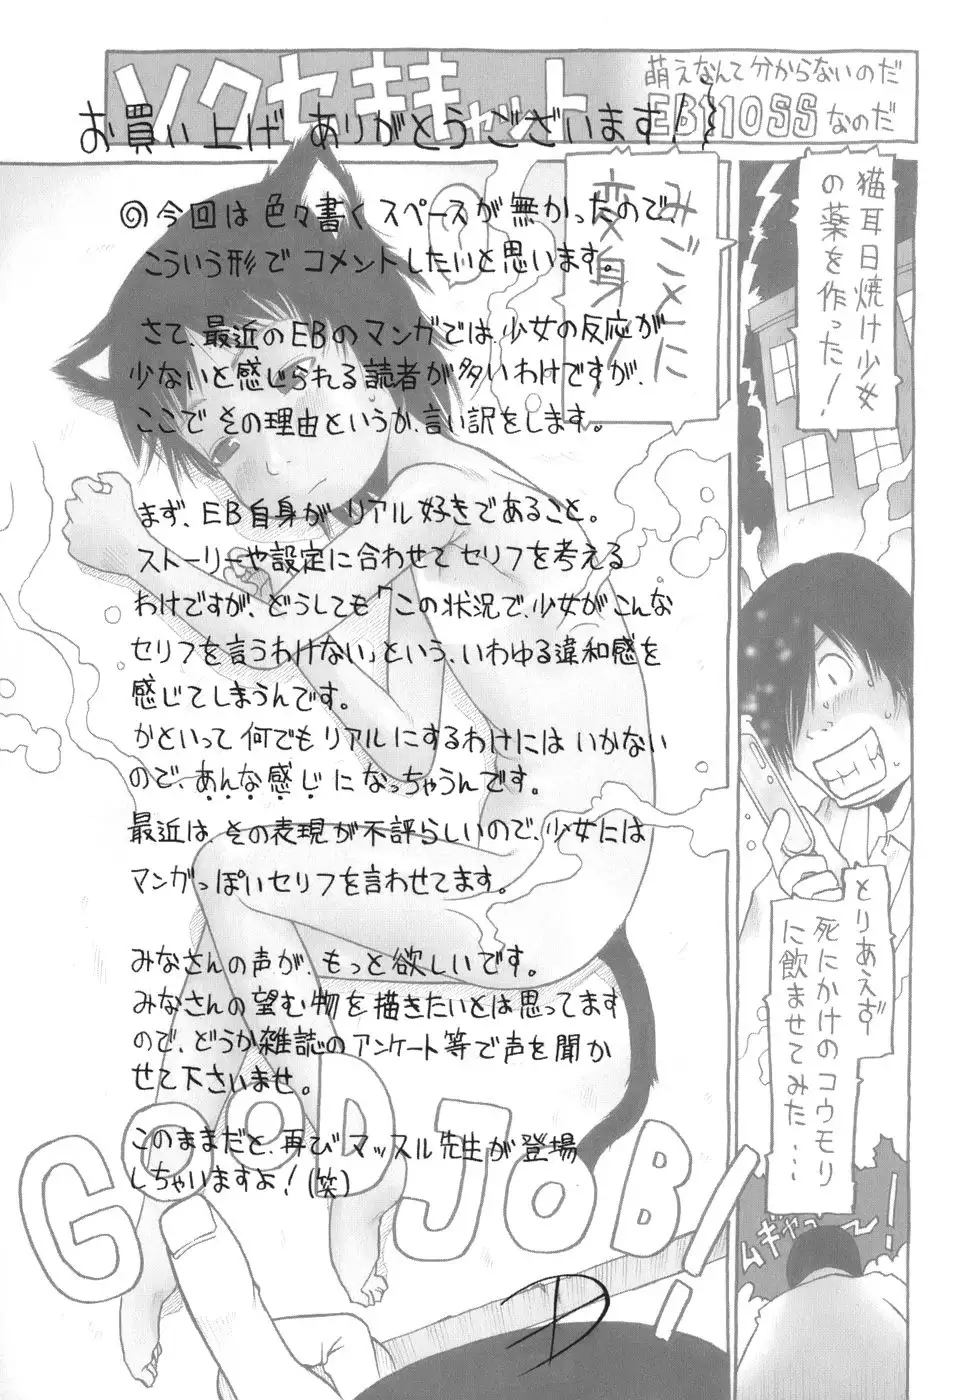 ソクセキキャット
萌えなんて分からないのだ
EB110SSなのだ
お買い上げありがとうございます!
◎今回は色々書くスペースが無かったので
こういう形でコメントしたいと思います。
さて、最近のEBのマンガでは、少女の反応が
少ないと感じられる読者が多いわけですが、
ここでその理由というか、言い訳をします。
まず、EB自身がリアル好きであること。
ストーリーや設定に合わせてセリフを考える
わけですが、どうしても「この状況で、少女がこんな
セリフを言うわけない」という、いわゆる違和感を
感じてしまうんです。
かといって何でもリアルにするわけにはいかない
ので、あんな感じになっちゃうんです。
最近は、その表現が不評らしいので、少女には
マンガっぽいセリフを言わせてます。
みなさんの声が、もっと欲しいです。
みなさんの望む物を描きたいとは思ってます
ので、どうか雑誌のアンケート等で声を聞か
せて下さいませ。
このままだと、再びマッスル先生が登場
しちゃいますよ!(笑)
猫耳日焼け少女
の薬を作った!
とりあえず
死にかけのコウモリ
に飲ませてみた…
ムギャァ〜!
みごとに
変身!
GOOD JOB!!